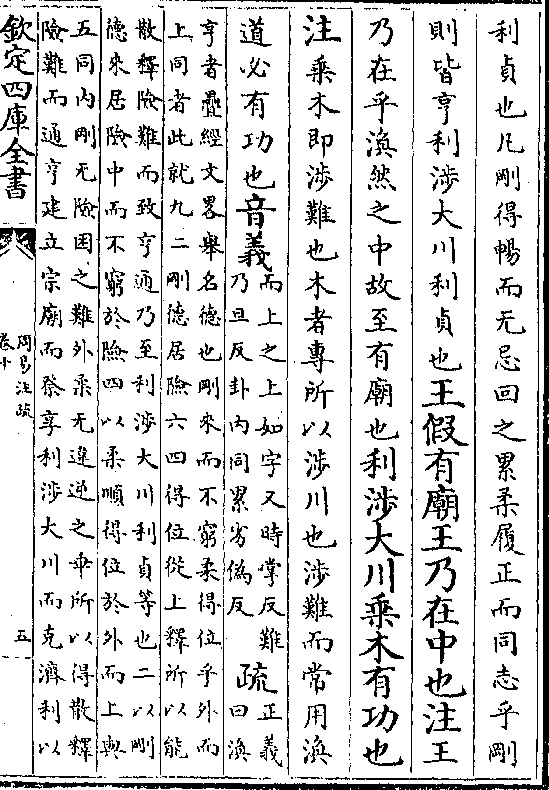 利貞也凡剛得暢而无忌回之累柔履正而同志乎剛
則皆亨利涉大川利貞也王假有廟王乃在中也注王
乃在乎渙然之中故至有廟也利涉大川乘木有功也
注乘木即涉難也木者專所以涉川也涉難而常用渙
道必有功也音義而上之上如字又時掌反難
乃旦反卦内同累劣偽反疏正義
曰渙
亨者疊經文畧舉名德也剛來而不窮柔得位乎外而
上同者此就九二剛德居險六四得位從上釋所以能
散釋險難而致亨通乃至利涉大川利貞等也二以剛
德來居險中而不窮於險四以柔順得位於外而上與
五同内剛无險困之難外柔无違逆之乖所以得散釋
險難而通亨建立宗廟而祭享利涉大川而克濟利以
欽定四庫全書
周易注疏
卷十
五